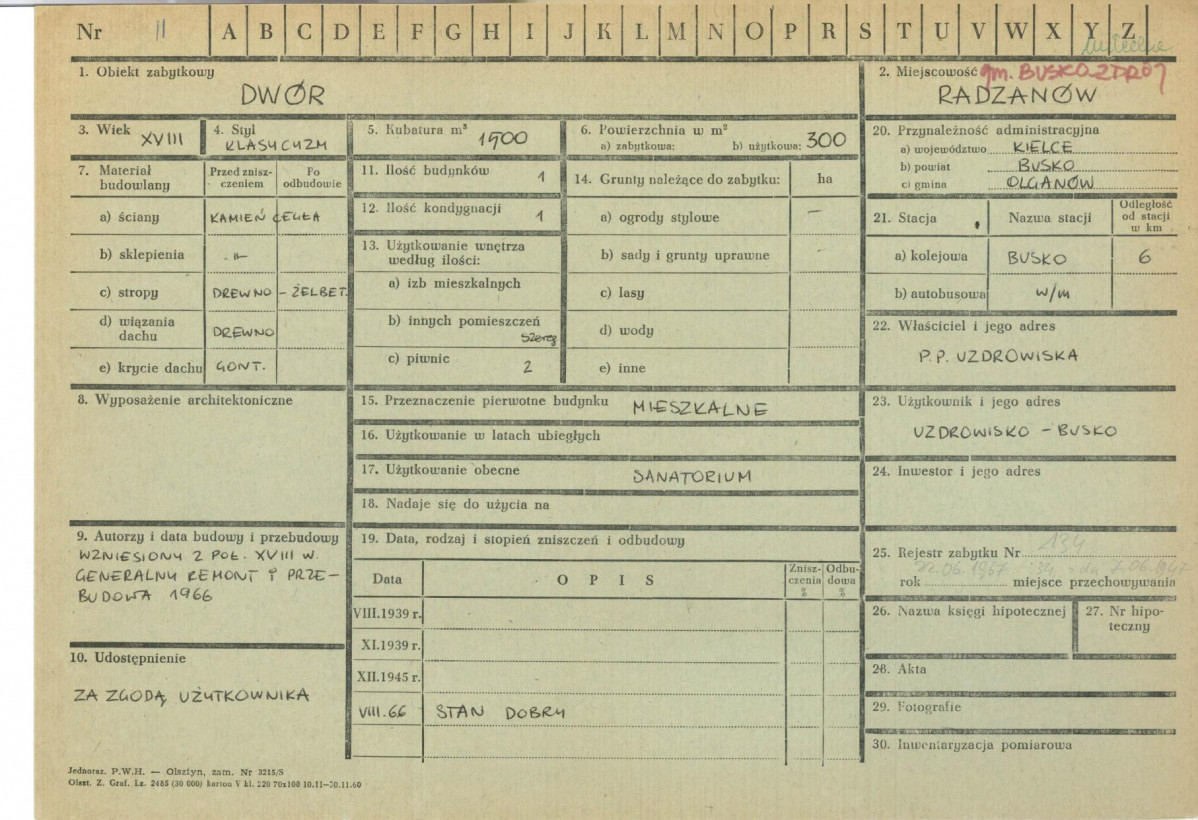 Nr 11 A B C D E F G H I J K L M N O P R S T U V W X Y Z
1. Obiekt zabytkowy
DWÓR
2. Miejscowość gm. BUSKO-ZDRÓJ
RADZANÓW
3. Wiek XVIII
4. Styl
KLASYCYZM
5. Kubatura m³ 1900
6. Powierzchnia w m²
a) zabytkowa: b) użytkowa: 300
20. Przynależność administracyjna
a) województwo KIELCE
b) powiat BUSKO
c) gmina OLGANÓW
7. Materiał budowlany
Przed znisz-czeniem
Po odbudowie
a) ściany KAMIEŃ CEGŁA
b) sklepienia -"-
c) stropy DREWNO - ŻELBET.
d) wiązania dachu DREWNO
e) krycie dachu GONT.
11. Ilość budynków 1
12. Ilość kondygnacji 1
13. Użytkowanie wnętrza według ilości:
a) izb mieszkalnych
b) innych pomieszczeń szereg
c) piwnic 2
14. Grunty należące do zabytku: ha
a) ogrody stylowe —
b) sady i grunty uprawne -
c) lasy
d) wody
e) inne
21. Stacja Nazwa stacji Odległość od stacji w km
a) kolejowa BUSKO 6
b) autobusowa w/m
22. Właściciel i jego adres
P.P. UZDROWISKA
8. Wyposażenie architektoniczne
15. Przeznaczenie pierwotne budynku MIESZKALNE
16. Użytkowanie w latach ubiegłych
17. Użytkowanie obecne SANATORIUM
18. Nadaje się do użycia na
23. Użytkownik i jego adres
UZDROWISKO - BUSKO
24. Inwestor i jego adres
9. Autorzy i data budowy i przebudowy
WZNIESIONY 2 POŁ. XVIII W.
GENERALNY REMONT I PRZE-
BUDOWA 1966
19. Data, rodzaj i stopień zniszczeń i odbudowy
Data OPIS Znisz-czenia % Odbu-dowa %
VIII.1939 r.
XI.1939 r.
XII.1945 r.
VIII.66 STAN DOBRY
25. Rejestr zabytku Nr 134
rok 22.06.1967 miejsce przechowywania
26. Nazwa księgi hipotecznej
27. Nr hipo-teczny
28. Akta
29. Fotografie
30. Inwentaryzacja pomiarowa
10. Udostępnienie
ZA ZGODĄ UŻYTKOWNIKA
Jednoraz. P.W.H. — Olsztyn, zam. Nr 3215/S
Olszt. Z. Graf. Lz. 2485 (30 000) karton V kl. 220 70x100 10.11—30.11.60